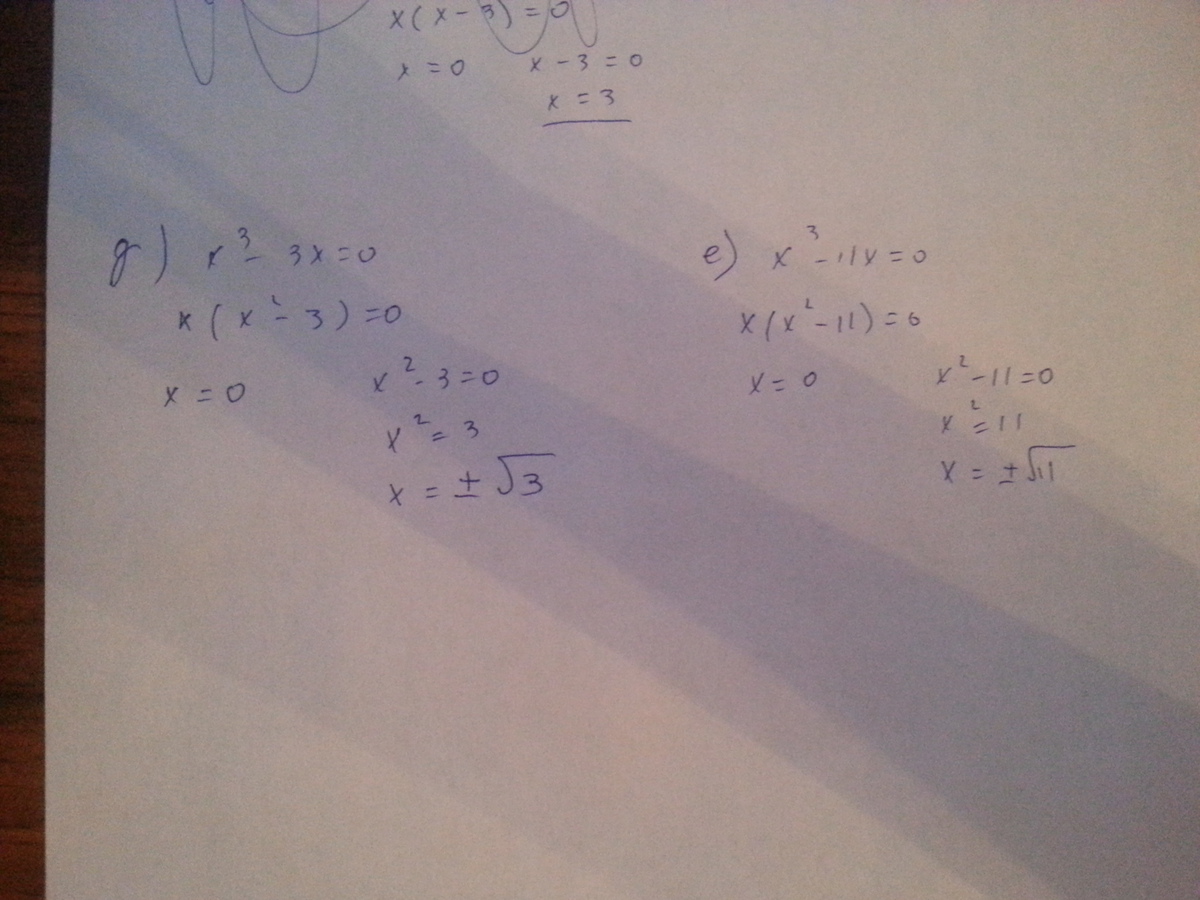 x(x-3)=0
x=0 x-3=0
x=3
g) x³-3x=0
x(x²-3)=0
x=0 x²-3=0
x²=3
x=±√3
e) x³-11x=0
x(x²-11)=0
x=0 x²-11=0
x²=11
x=±√11